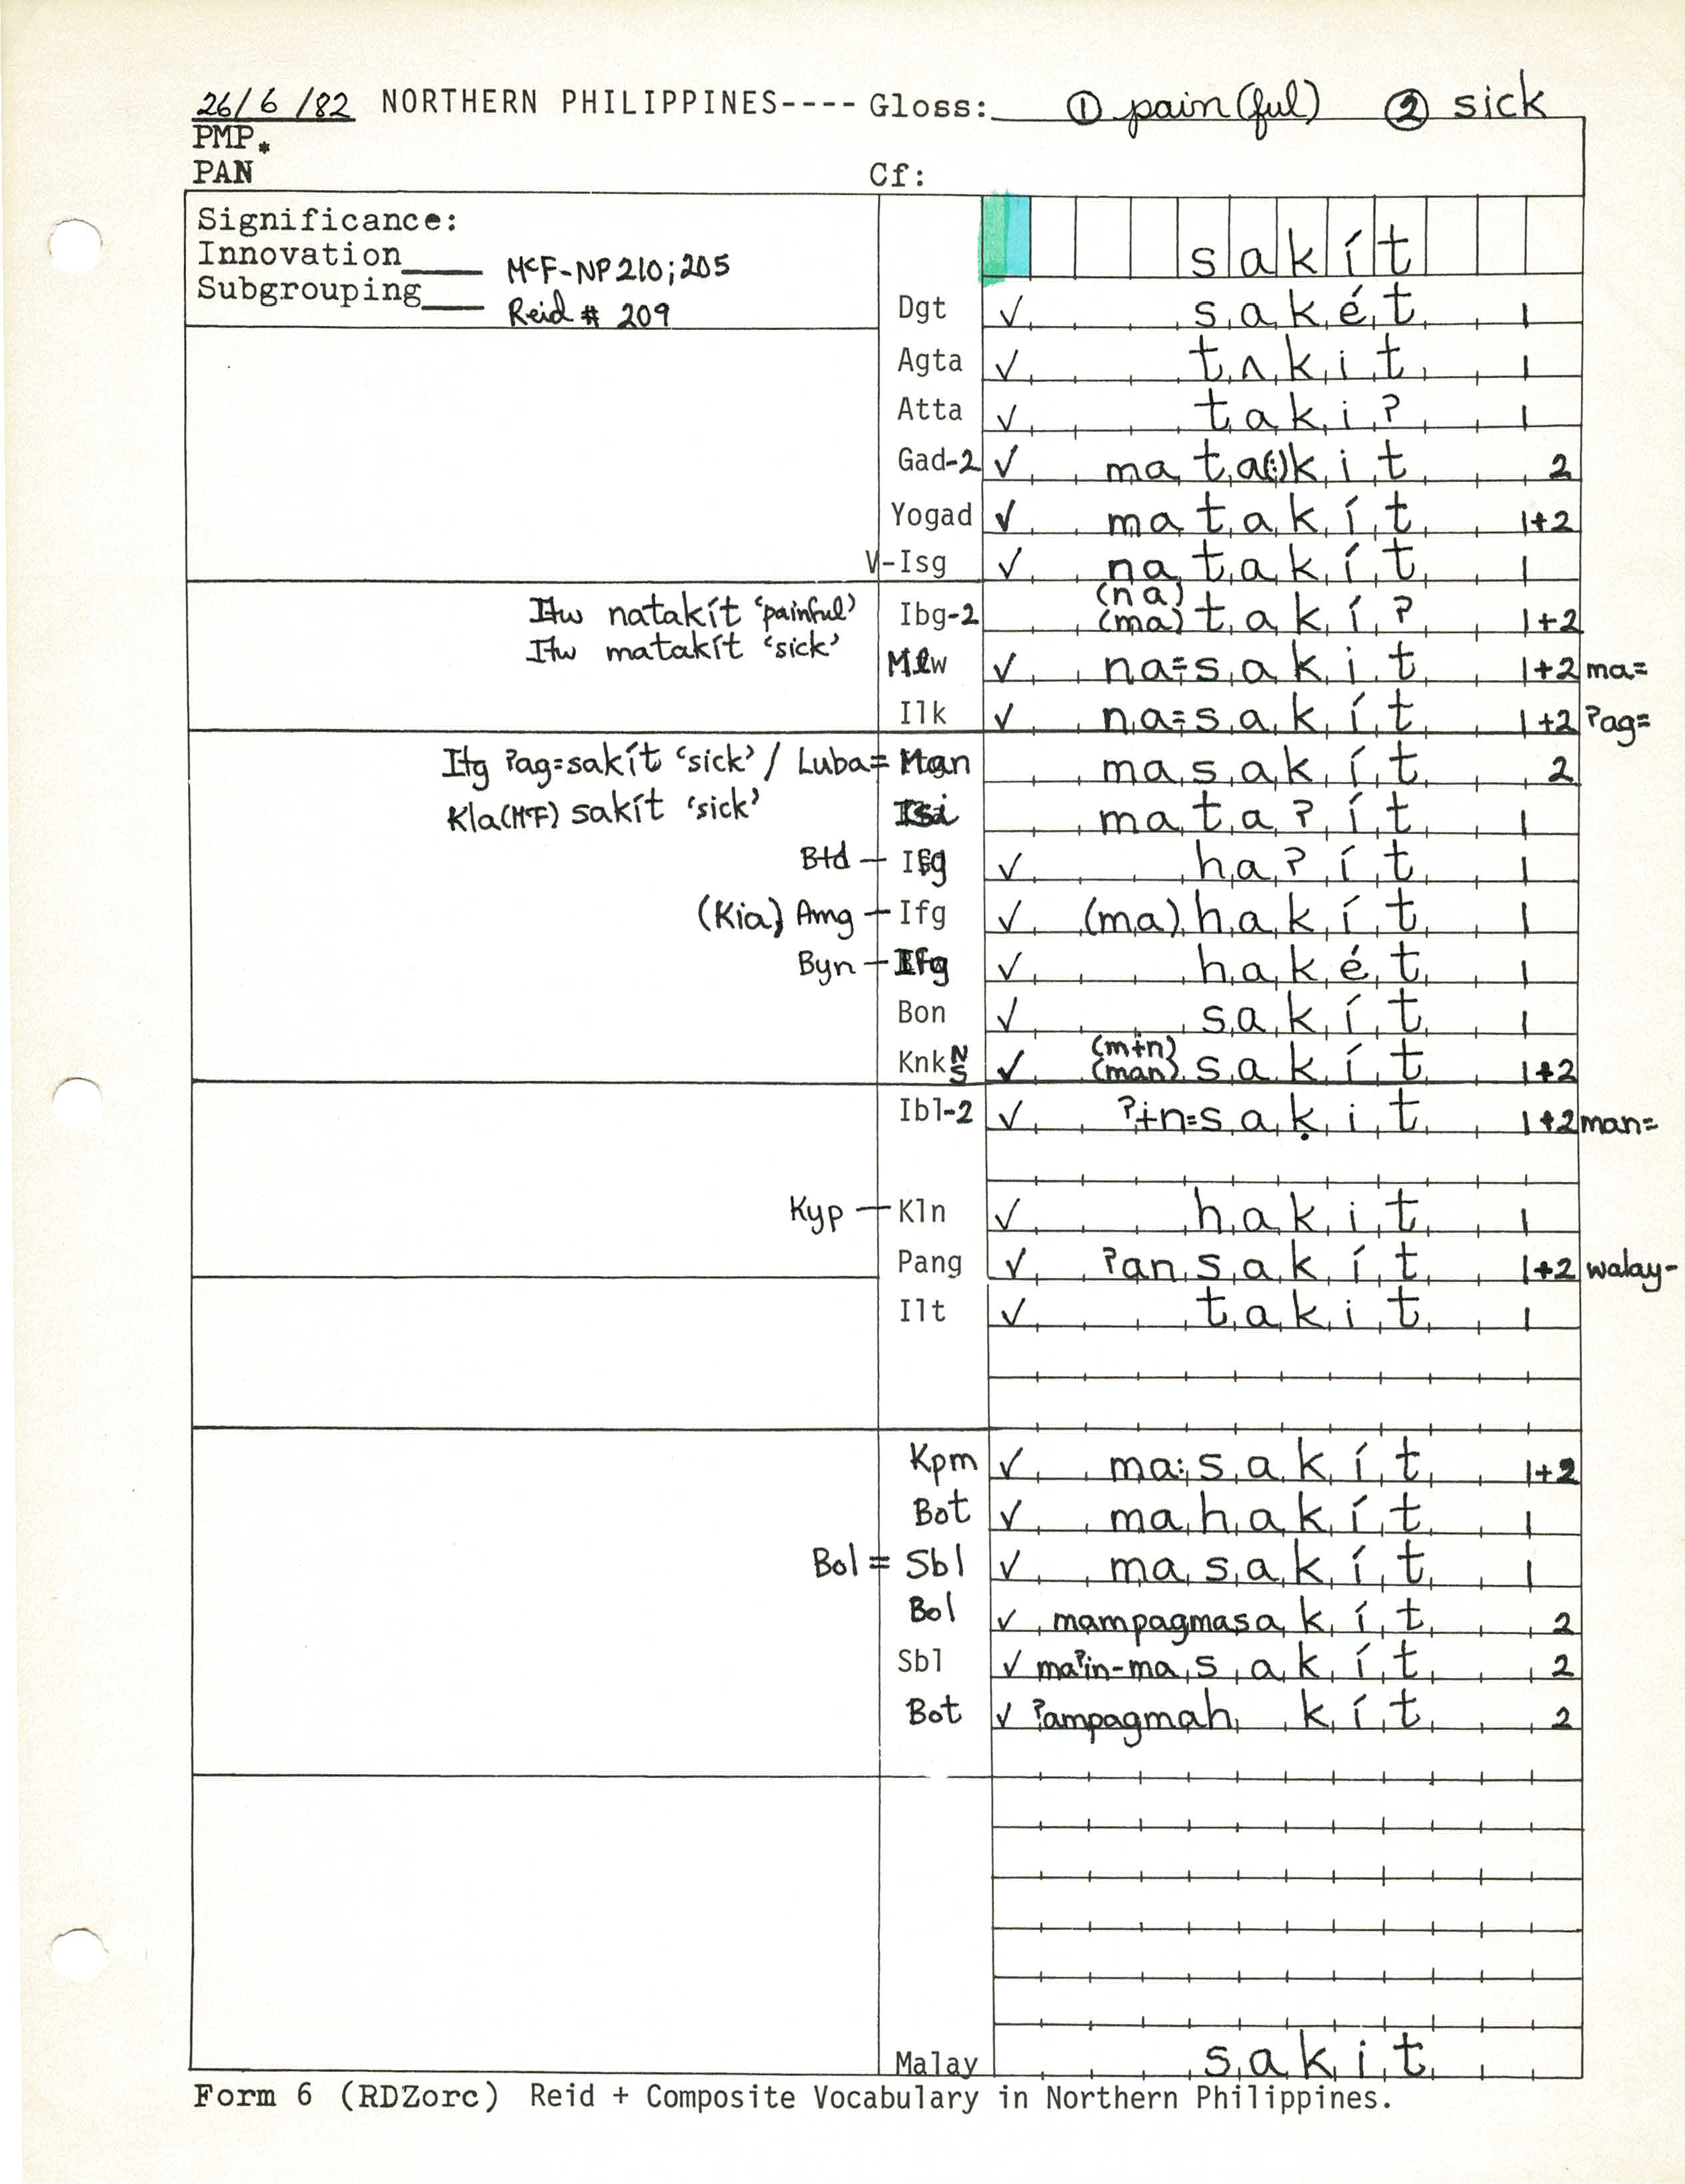 26/6/82 NORTHERN PHILIPPINES---- Gloss: ① pain(ful) ② sick
PMP*
PAN Cf:
Significance:
Innovation____ McF-NP210;205
Subgrouping____ Reid # 209
sakít
Dgt ✓ sakét 1
Agta ✓ tʌkit 1
Atta ✓ taki? 1
Gad-2 ✓ mata(:)kit 2
Yogad ✓ matakít 1+2
V-Isg ✓ natakít 1
(na)
Itw natakít ‘painful’ Ibg-2 (ma)takí? 1+2
Itw matakít ‘sick’
Mlw ✓ na=sakit 1+2 ma=
Ilk ✓ na=sakít 1+2 ?ag=
Itg ?ag=sakít ‘sick’ / Luba= Man masakít 2
Kla(McF) sakít ‘sick’ Isi mata?ít 1
Btd - Ifg ✓ ha?ít 1
(Kia) Amg - Ifg ✓ (ma)hakít 1
Byn - Ifg ✓ hakét 1
Bon ✓ sakít 1
(mɨn)
Knk N S ✓ (man)sakít 1+2
Ibl-2 ✓ ?ɨn=saḳit 1+2 man=
Kyp - Kln ✓ hakit 1
Pang ✓ ?ansakít 1+2 walay-
Ilt ✓ takit 1
Kpm ✓ ma:sakít 1+2
Bot ✓ mahakít 1
Bol = Sbl ✓ masakít 1
Bol ✓ mampagmasakít 2
Sbl ✓ ma?in-masakít 2
Bot ✓ ?ampagmah kít 2
Malay sakit
Form 6 (RDZorc) Reid + Composite Vocabulary in Northern Philippines.